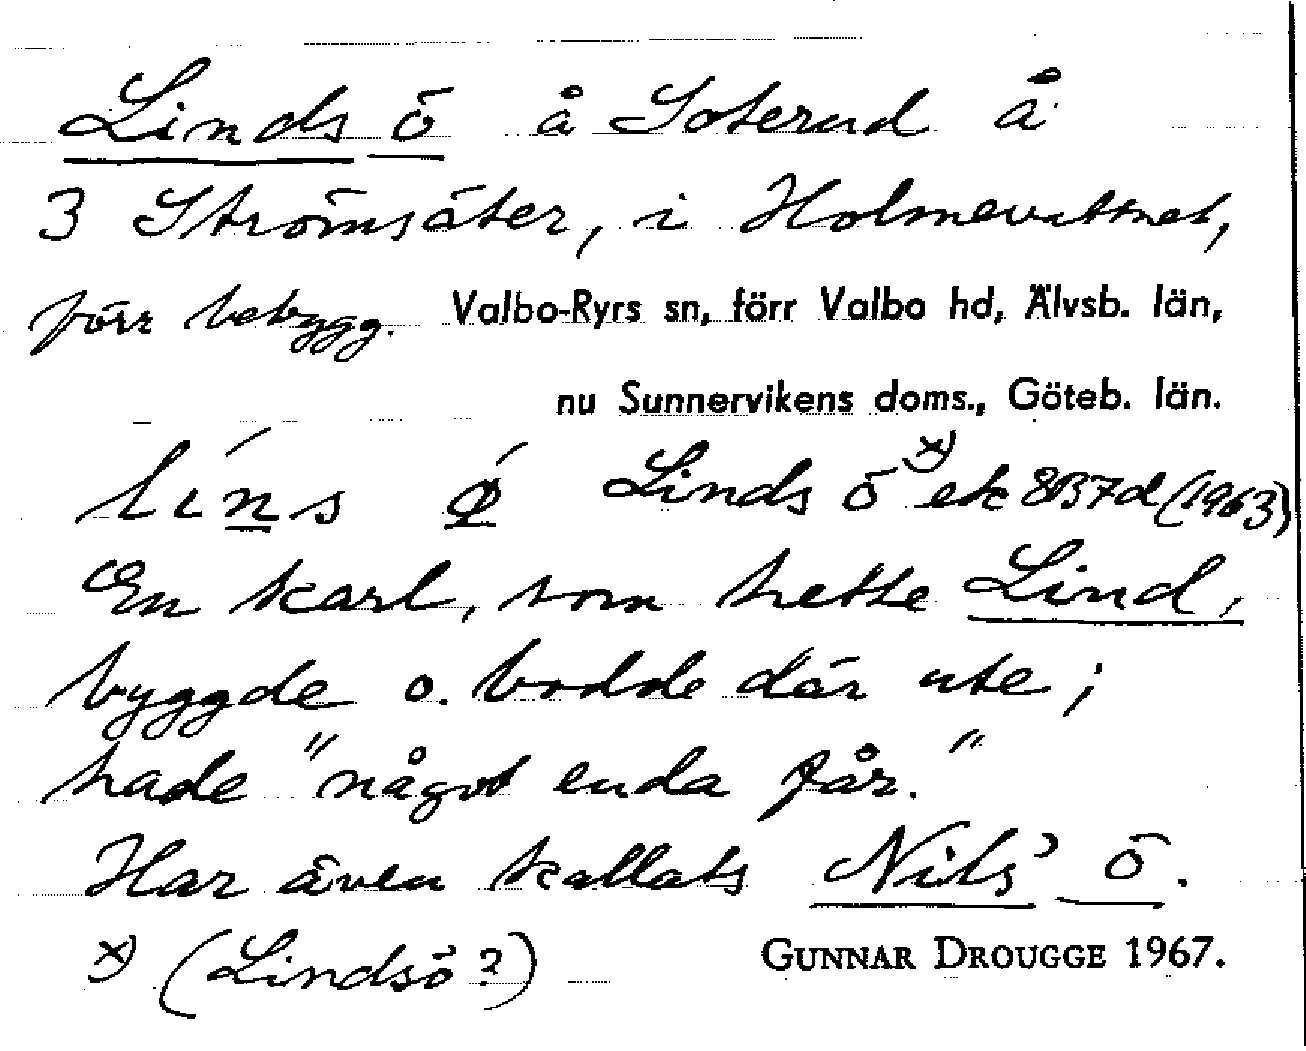 Linds ö å Soterud å
3 Strömsäter, i Holmevattnet,
förr bebygg. Valbo-Ryrs sn, förr Valbo hd, Älvsb. län,
nu Sunnervikens doms., Göteb. län.
líns ǿ Linds ö x) ek 8B7d (1963)
En karl, som hette Lind,
byggde o. bodde där ute;
hade "något enda får."
Har även kallats Nils' ö.
x) (Lindsö?) GUNNAR DROUGGE 1967.